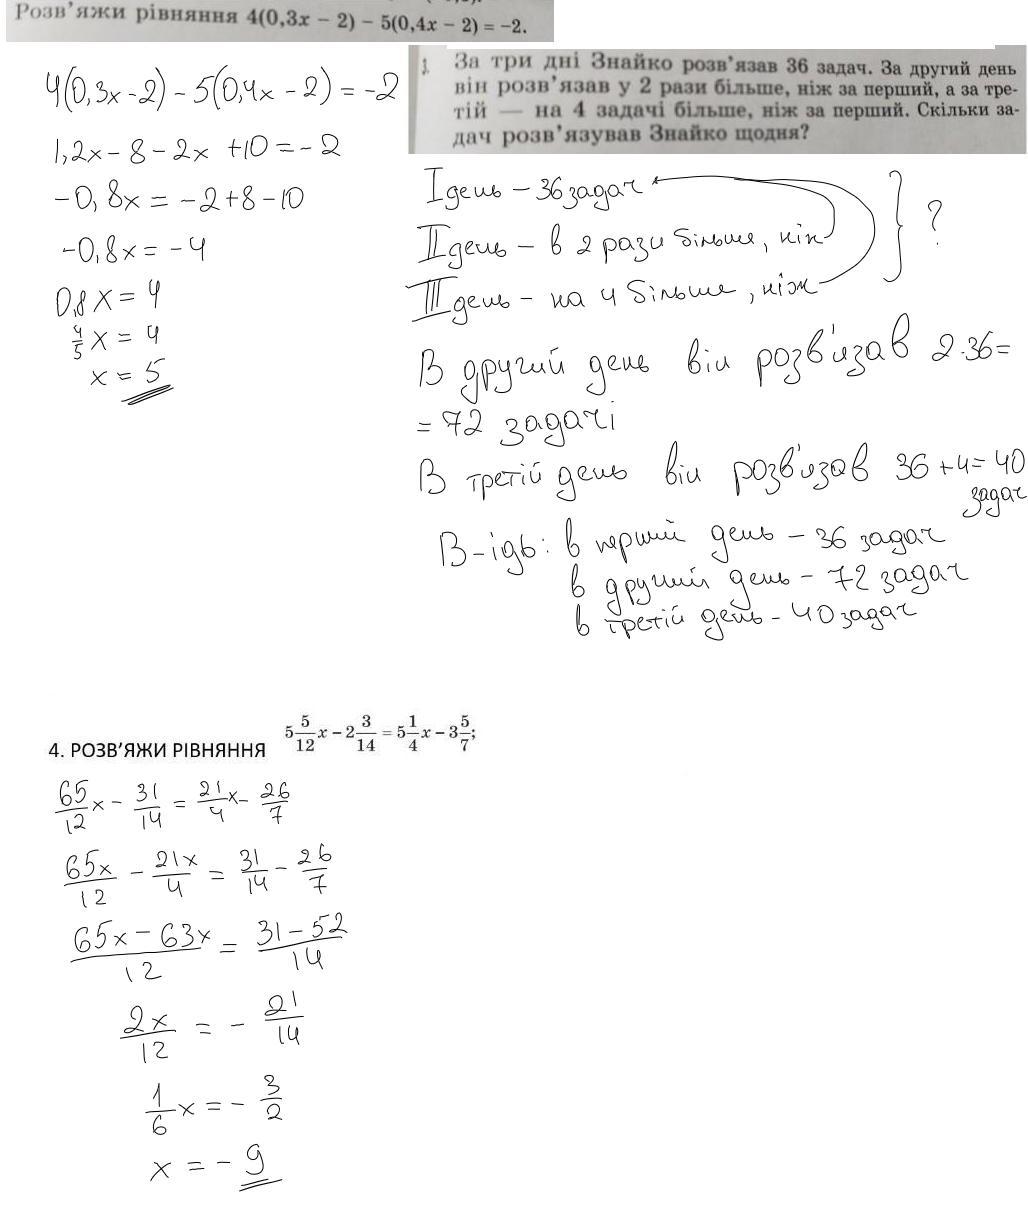 Розв’яжи рівняння 4(0,3x − 2) − 5(0,4x − 2) = −2.
4(0,3x - 2) - 5(0,4x - 2) = -2
1,2x - 8 - 2x + 10 = - 2
-0,8x = -2 + 8 - 10
-0,8x = -4
0,8x = 4
4/5 x = 4
x = 5
3. За три дні Знайко розв’язав 36 задач. За другий день
він розв’язав у 2 рази більше, ніж за перший, а за тре-
тій — на 4 задачі більше, ніж за перший. Скільки за-
дач розв’язував Знайко щодня?
I день – 36 задач
II день – в 2 рази більше, ніж
III день – на 4 більше, ніж
} ?
В другий день він розв'язав 2·36=
= 72 задачі
В третій день він розв'язав 36 + 4 = 40
задач
В-ідь: в перший день – 36 задач
в другий день - 72 задач
в третій день - 40 задач
4. РОЗВ’ЯЖИ РІВНЯННЯ 5 5/12 x − 2 3/14 = 5 1/4 x − 3 5/7;
65/12 x - 31/14 = 21/4 x - 26/7
65x/12 - 21x/4 = 31/14 - 26/7
65x - 63x/12 = 31 - 52/14
2x/12 = - 21/14
1/6 x = - 3/2
x = - 9